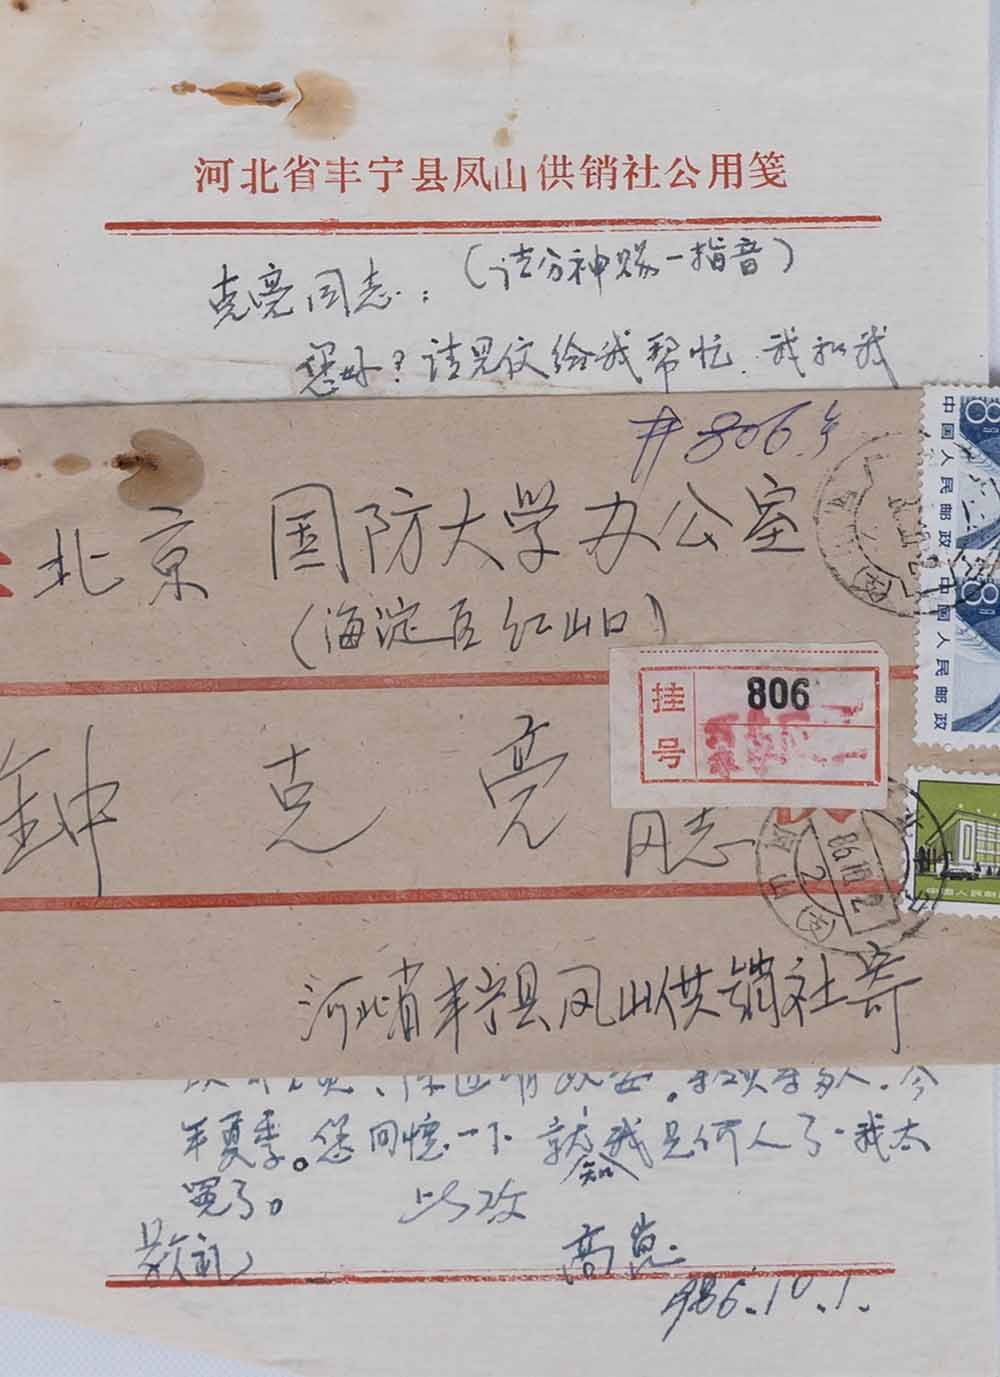 河北省丰宁县凤山供销社公用笺
克亮同志：（请分神赐一指音）
您好？请见仗给我帮忙．我和我
#806号
北京 国防大学办公室
（海淀区红山口）
挂号
806
钟克亮同志
河北省丰宁县凤山供销社寄
中国人民邮政
8
中国人民邮政
8
86.10.2
年夏季。您回忆一下就知我是何人了．我太
冤了。 此致
敬礼
高
1986.10.1.